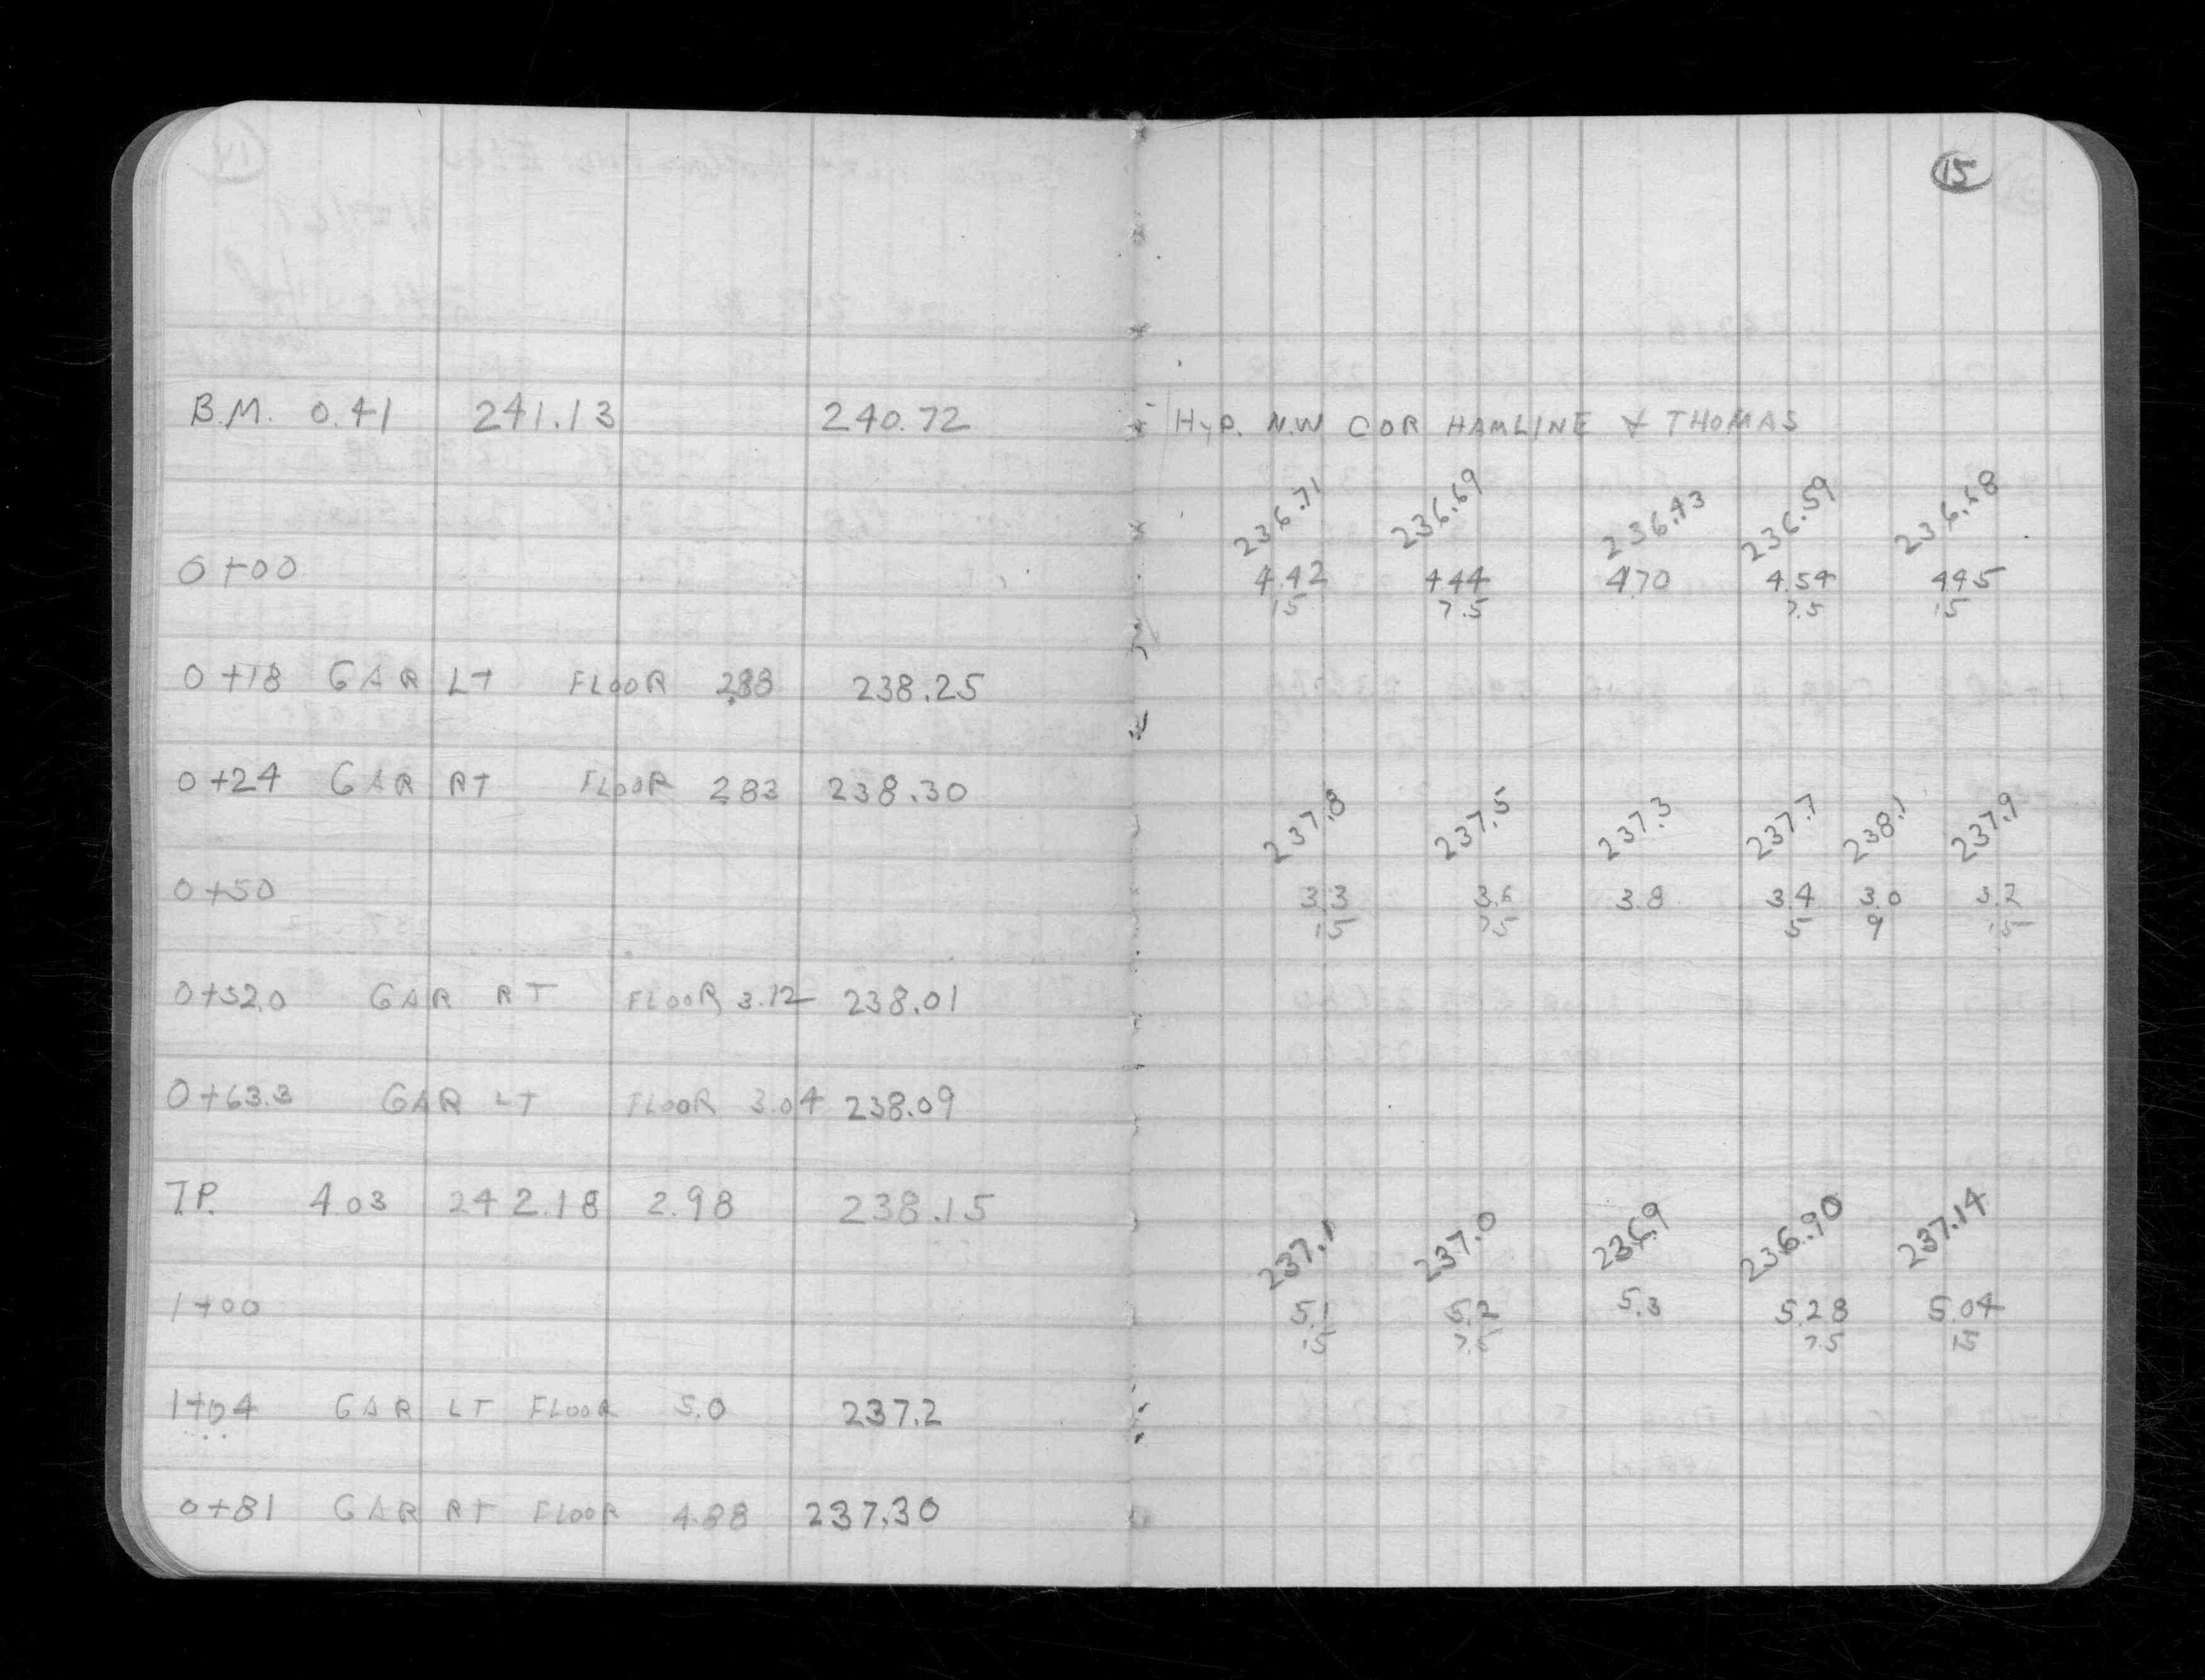 15
B.M. 0.41 241.13 240.72 Hyd. N.W COR HAMLINE & THOMAS
236.71 236.69 236.43 236.59 236.68
0+00 4.42 4.44 4.70 4.54 4.45
15 7.5 7.5 15
0+18 GAR LT FLOOR 2.88 238.25
0+24 GAR RT FLOOR 2.83 238.30
237.8 237.5 237.3 237.7 238.1 237.9
0+50 3.3 3.6 3.8 3.4 3.0 3.2
15 7.5 5 9 15
0+52.0 GAR RT FLOOR 3.12 238.01
0+63.3 GAR LT FLOOR 3.04 238.09
T.P. 4.03 242.18 2.98 238.15
237.1 237.0 236.9 236.90 237.14
1+00 5.1 5.2 5.3 5.28 5.04
15 7.5 7.5 15
1+04 GAR LT FLOOR 5.0 237.2
0+81 GAR RT FLOOR 4.88 237.30